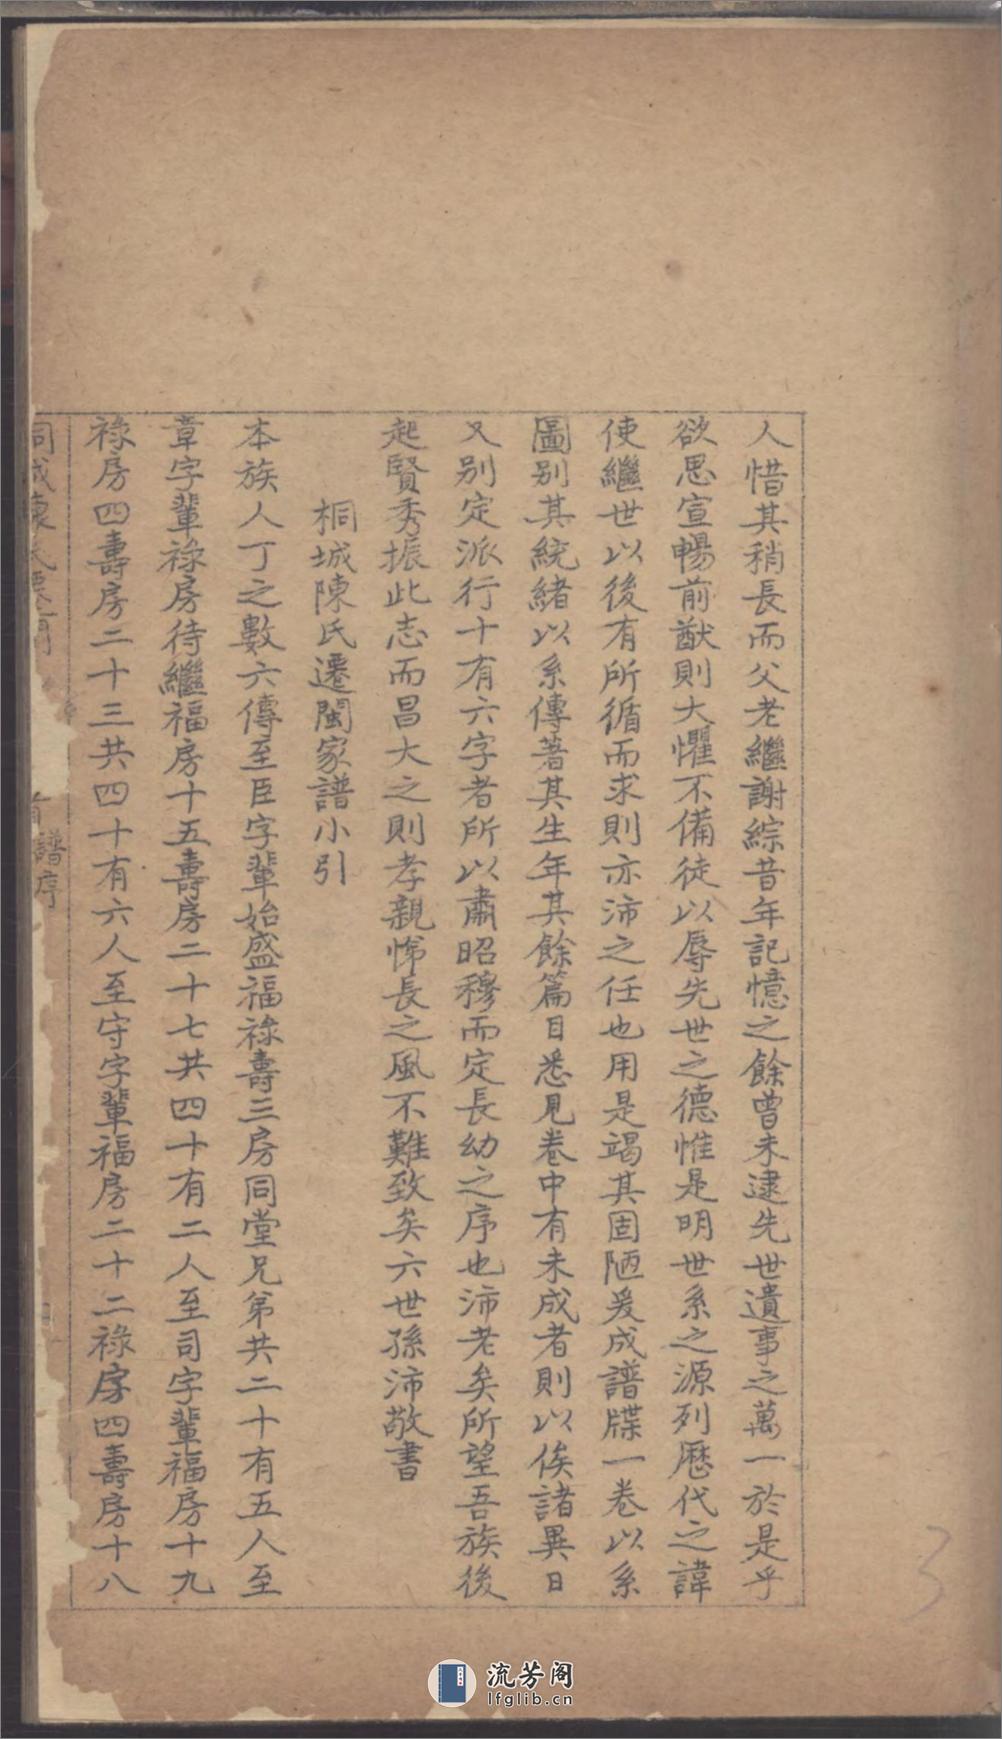 人惜其稍長而父老繼謝綜昔年記憶之餘曾未逮先世遺事之萬一於是乎
欲思宣暢前猷則大懼不備徒以辱先世之德惟是明世系之源列歷代之諱
使繼世以後有所循而求則亦沛之任也用是竭其固陋爰成譜牒一卷以系
圖別其統緒以系傳著其生年其餘篇目悉見卷中有未成者則以俟諸異日
又別定派行十有六字者所以肅昭穆而定長幼之序也沛老矣所望吾族後
起賢秀振此志而昌大之則孝親悌長之風不難致矣六世孫沛敬書
桐城陳氏遷閩家譜小引
本族人丁之數六傳至臣字輩始盛福祿壽三房同堂兄弟共二十有五人至
章字輩祿房待繼福房十五壽房二十七共四十有二人至司字輩福房十九
祿房四壽房二十三共四十有六人至守字輩福房二十二祿房四壽房十八
譜序
3
流芳阁
lfglib.cn